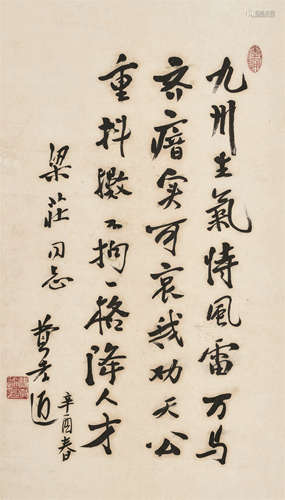 九州生氣恃風雷万马
齐瘖究可哀我劝天公
重抖擞不拘一格降人才
梁莊同志
費孝通
辛酉春